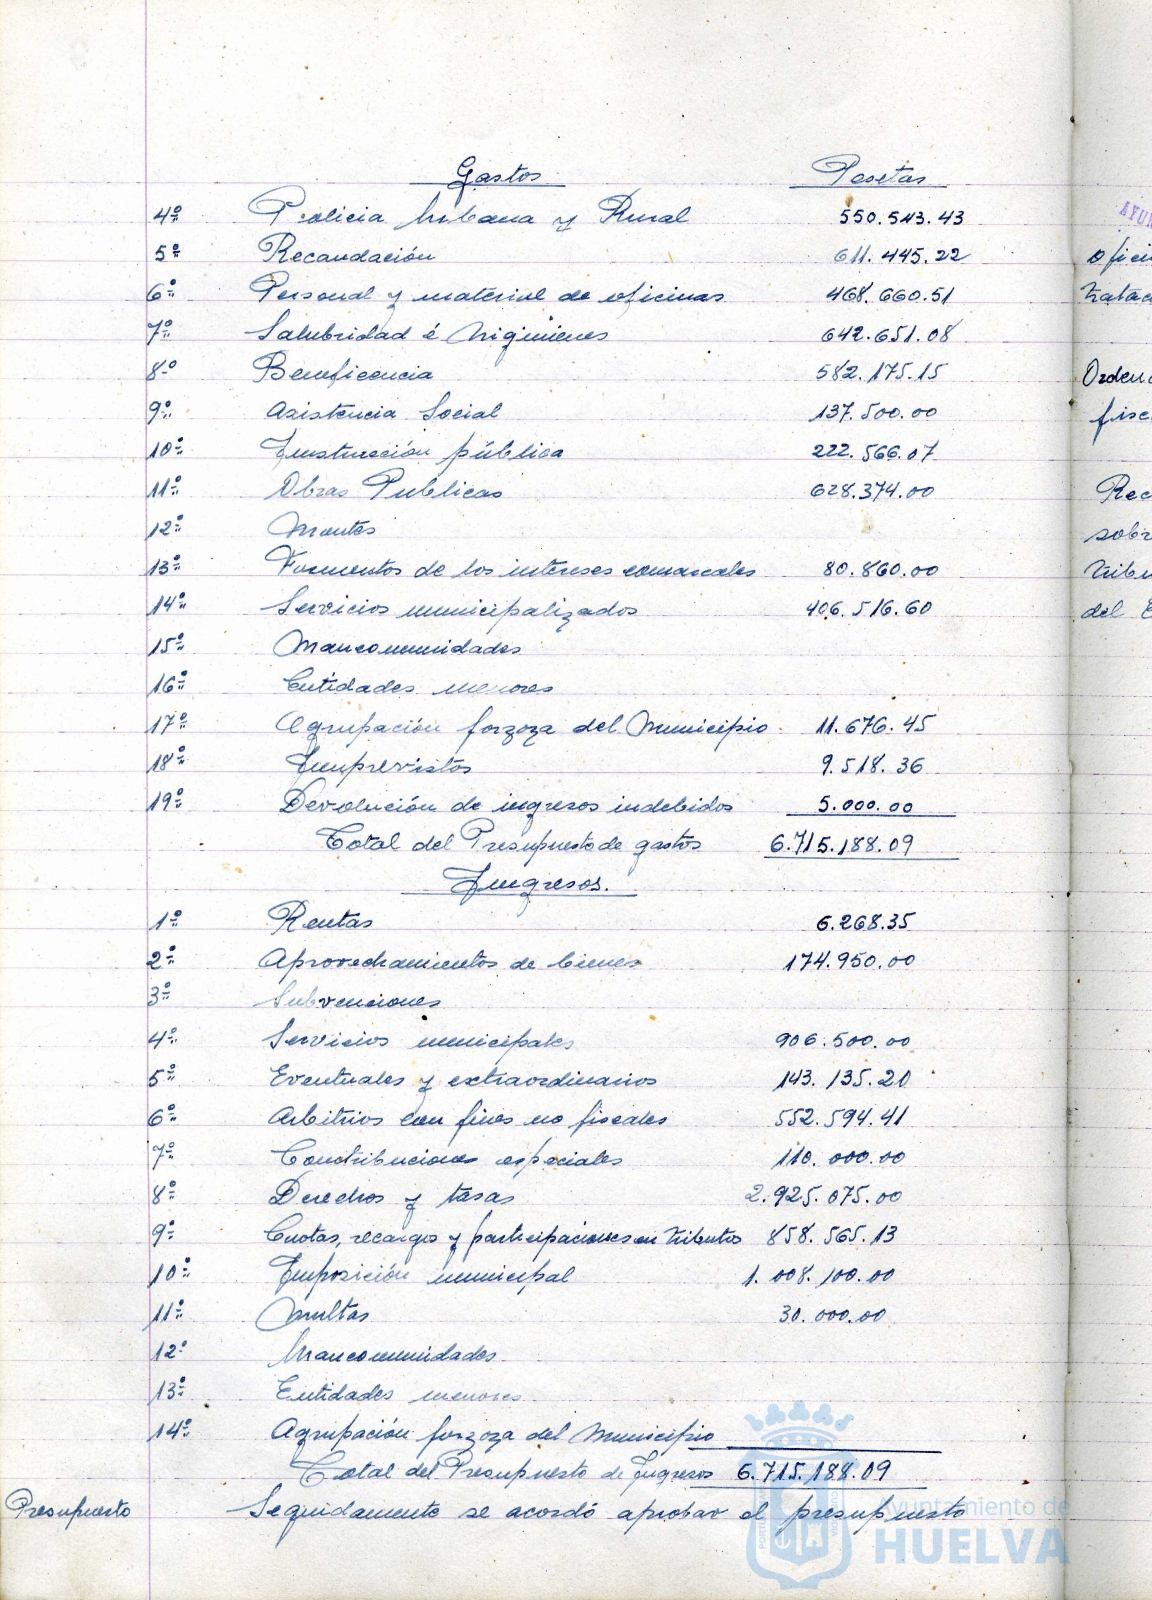 Gastos Pesetas
4º Policia Urbana y Rural 550.543.43
5º Recaudación 611.445.22
6º Personal y material de oficinas 468.660.51
7º Salubridad é higuienes 642.651.08
8º Beneficencia 582.175.15
9º Asistencia Social 137.500.00
10º Instrucción pública 222.566.07
11º Obras Publicas 628.374.00
12º Montes
13º Fomentos de los intereses comarcales 80.860.00
14º Servicios municipalizados 406.516.60
15º Mancomunidades
16º Entidades menores
17º Agrupación forzoza del Municipio 11.676.45
18º Imprevistos 9.518.36
19º Devolución de ingresos indebidos 5.000.00
Total del Presupuesto de gastos 6.715.188.09
Ingresos.
1º Rentas 6.268.35
2º Aprovechamientos de bienes 174.950.00
3º Subvenciones
4º Servicios municipales 906.500.00
5º Eventuales y extraordinarios 143.135.20
6º Arbitrios con fines no fiscales 552.594.41
7º Contribuciones especiales 110.000.00
8º Derechos y tasas 2.925.075.00
9º Cuotas, recargos y participaciones en tributos 858.565.13
10º Imposición municipal 1.008.100.00
11º Multas 30.000.00
12º Mancomunidades
13º Entidades menores
14º Agrupación forzoza del Municipio
Total del Presupuesto de Ingresos 6.715.188.09
Presupuesto Seguidamente se acordó aprobar el presupuesto
Ayuntamiento de
HUELVA